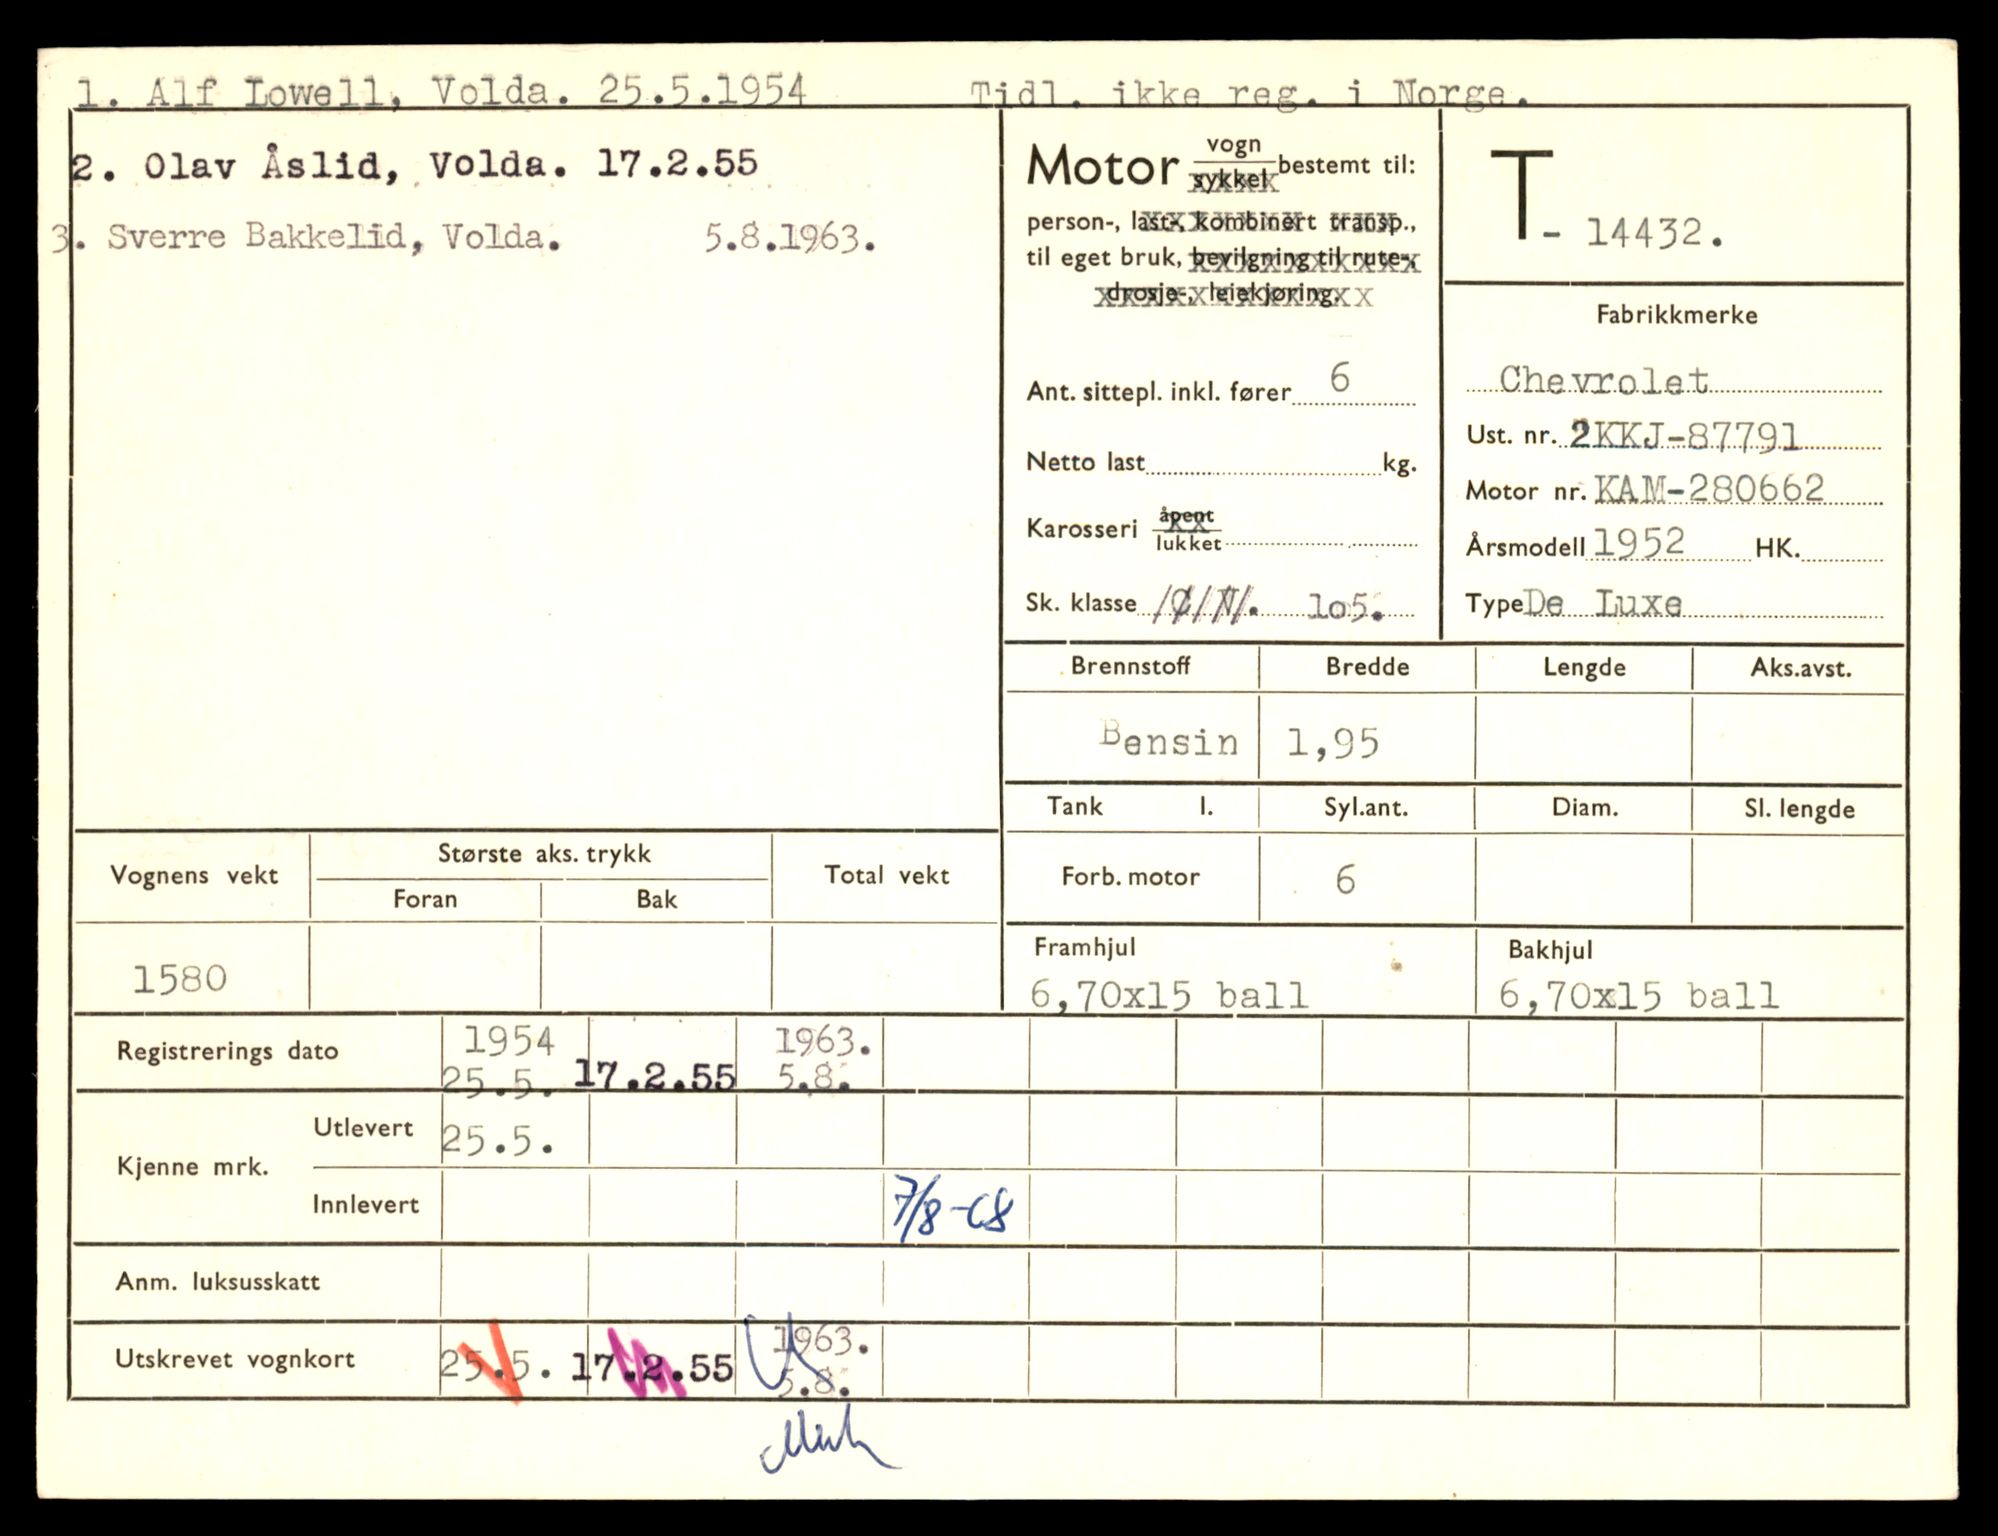 1. Alf Lowell, Volda. 25.5.1954 Tidl. ikke reg. i Norge.
2. Olav Åslid, Volda. 17.2.55
3. Sverre Bakkelid, Volda. 5.8.1963.
Motor vogn sykkel bestemt til:
person-, last-, kombinert transp.,
til eget bruk, bevilgning til rute-,
drosje-, leiekjøring.
Ant. sittepl. inkl. fører 6
Netto last kg.
Karosseri åpent lukket
Sk. klasse 105.
T - 14432.
Fabrikkmerke
Chevrolet
Ust. nr. 2KKJ-87791
Motor nr. KAM-280662
Årsmodell 1952 HK.
Type De Luxe
Brennstoff Bredde Lengde Aks.avst.
Bensin 1,95
Tank l. Syl.ant. Diam. Sl. lengde
Forb. motor 6
Framhjul Bakhjul
6,70x15 ball 6,70x15 ball
Vognens vekt Største aks. trykk Total vekt
Foran Bak
1580
Registrerings dato 1954 25.5. 17.2.55 1963. 5.8.
Kjenne mrk. Utlevert 25.5.
Innlevert 7/8-68
Anm. luksusskatt
Utskrevet vognkort 25.5. 17.2.55 1963. 5.8.